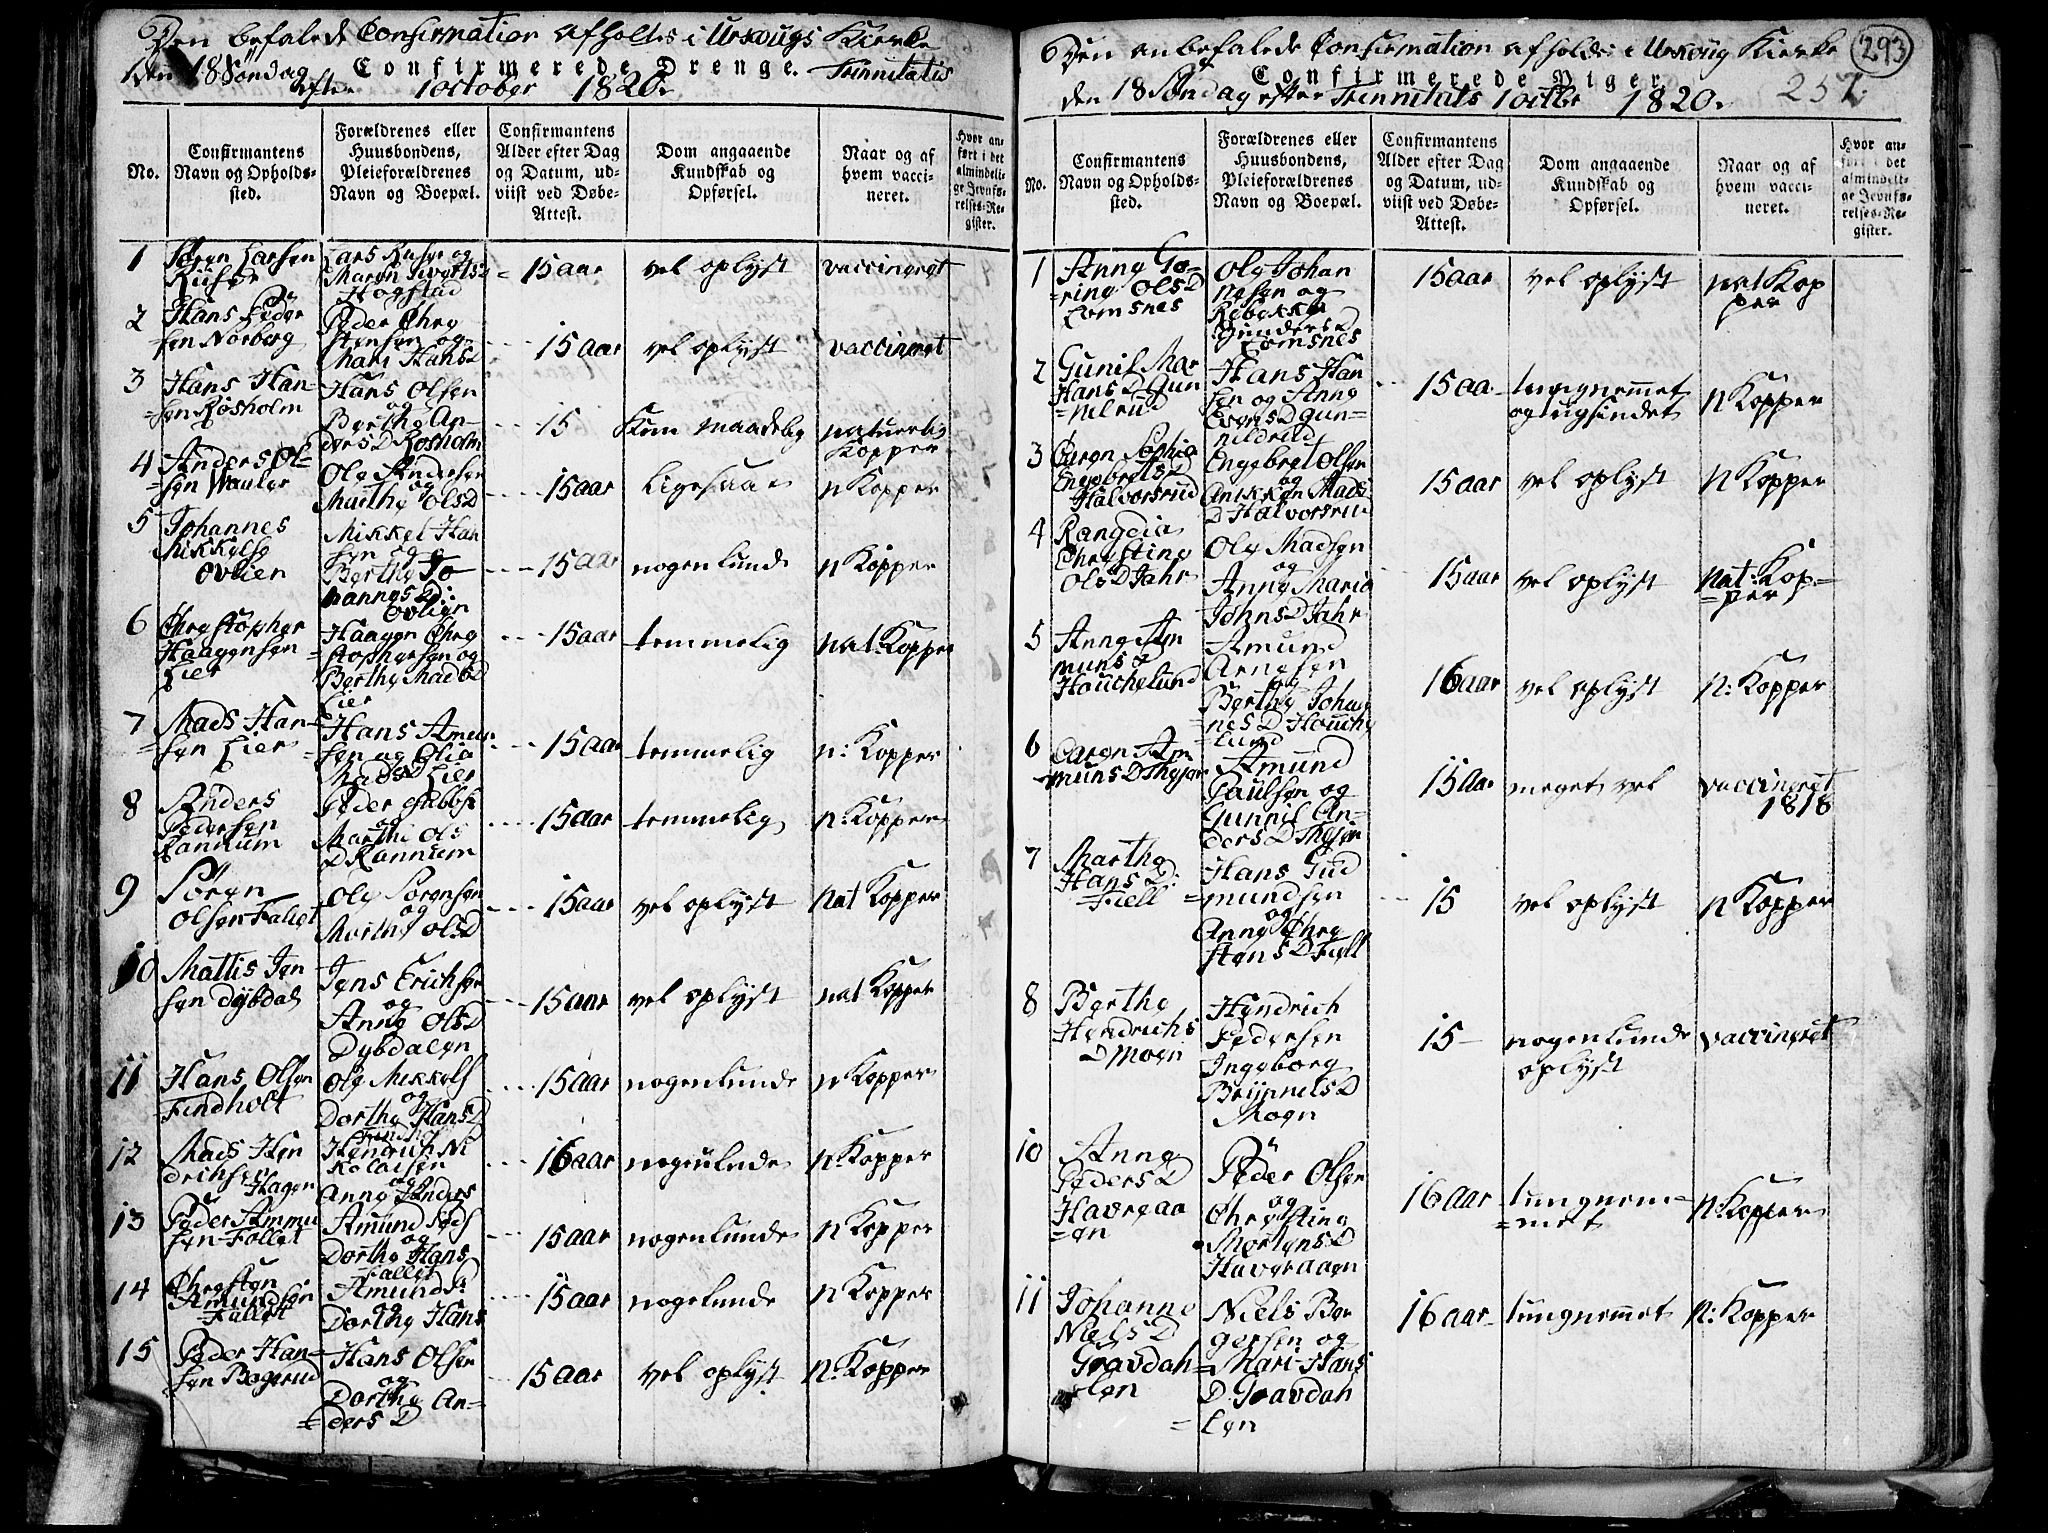 Den befalede Confirmation afholtes i Urskougs Kierke
Confirmerede Drenge.
Den 18 Søndag efter Trinnitatis
1 october 1820.
No.
Confirmantens Navn og Opholds-sted.
Forældrenes eller Huusbondens, Pleieforældrenes Navn og Boepæl.
Confirmantens Alder efter Dag og Datum, ud-viist ved Døbe-Attest.
Dom angaaende Kundskab og Opførsel.
Naar og af hvem vacci-neret.
Hvor an-ført i det almindeli-ge Jevnfø-relses-Re-gister.
1 Søren Larsen Riiser
Lars Riiser og Maren Hogstad
15 aar vel oplyst vaccineret
2 Hans Peder sen Norberg
Peder Chre stensen og Mari Hansd
15 aar vel oplyst vaccineret
3 Hans Han= =sen Rosholm
Hans Olsen og Berthe An= dersD Rosholm
15 Kun maadelig naturlig Kopper
4 Anders Ol= =sen
Ole Andersen og Marthe OlsD
15 aar Ligesaa n Kopper
5 Johannes Mikkelse Ovlien
Mikkel Han sen og Berthe Jo hannesD: Ovlien
15 aar nogenlunde n Kopper
6 Chrestopher Haagensen Lier
Haagen Chre =stophersen og Berthe MadsD Lier
15 aar temmelig nat: Kopper
7 Mads Han= =sen Lier
Hans sen og Olia MadsD Lier
15 aar temmelig n: Kopper
8 Anders Pedersen Rannum
Peder og Marthe Ols D Rannum
15 aar temmelig n: Kopper
9 Søren Olsen Fallet
Ole Sørensen og Marthe OlsD
15 aar vel oplyst Nat Kopper
10 Mattis Jen sen Dybdal
Jens Erichsen og Anne OlsD Dybdalen
15 aar vel oplyst nat Kopper
11 Hans Olsen Findholt
Ole Mikkels og Dorthe HansD
15 aar nogenlunde n Kopper
12 Mads Hen drichsen Hagen
Hendrich Ni kolaisen og Anne Anders
16 aar nogenlunde n: Kopper
13 Peder Ammu sen Follet
Amund og Dorthe Hans Fallet
15 aar nogenlunde n Kopper
14 Chresten Amundsen Fallet
Amund Dorthe Hans
15 aar nogelunde n Kopper
15 Peder Han= sen Bogerud
Hans Olsen og Dorthe An= =ders D
15 aar vel oplyst n: Kopper
Den anbefalede Confirmation afholdes i Urskoug Kierke
293
Confirmerede Piger
257.
den 18 Søndag efter Trinnitats 1 octbr 1820.
No.
Confirmantens Navn og Opholds-sted.
Forældrenes eller Huusbondens, Pleieforældrenes Navn og Boepæl.
Confirmantens Alder efter Dag og Datum, ud-viist ved Døbe-Attest.
Dom angaaende Kundskab og Opførsel.
Naar og af hvem vacci-neret.
Hvor an-ført i det almindeli-ge Jevnfø-relses-Re-gister.
1 Anne Go= =ring OlsD Lomsnes
Ole Johan nesen og Rebekke GundersD Lomsnes
15 aar vel oplyst nat Kop per
2 Gunil Mar HansD Gun =nilrud
Hans Han sen og Anne EvensD Gun= nildrud
15 aa. tungnemmet n Kopper
3 Caren Sophia EngebretsD Halvorsrud
Engebret Olsen og Anikken Mads D Halvorsru
15 aar vel oplyst n Kopper
4 Rangdia Chrestine OlsD Jahr
Ole Madsen og Anne Maria JohnsD Jahr
15 aar vel oplyst nat: Kop= =per
5 Anne Am munsD Houchelund
Amund Arnesen og Berthe Johan =nesD Houche =lund
16 aar vel oplyst n: Kopper
6 Caren Am munsD
Amund Paulsen og Gunnil An= dersD
15 Aar meget vel vaccineret 1818
7 Marthe HansD: Fiell
Hans Gud =mundsen og Anne Chre stensD Fiell
15 vel oplyst n Kopper
8 Berthe Hendrichs D Moen
Hendrich Pedersen Ingeborg BrynnelsD Moen
15 nogenlunde oplyst vaccineret
10 Anne PedersD Havreaa =en
Peder Olsen og Chrestine MortensD Haveraaen
16 aar tungnem= =met n: Kopper
11 Johanne NielsD Gravdah =len
Niels Ber gersen og Mari Hans D. Gravdah =len
16 aar tungnemmet n: Kopper